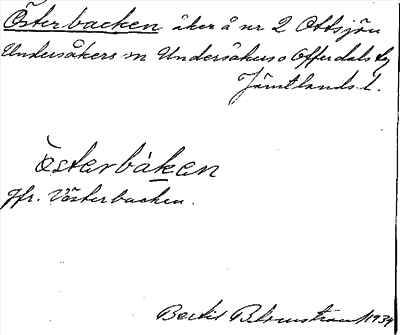 Österbacken åker å nr 2 Ottsjön
Undersåkers sn Undersåkers o Offerdals tg
Jämtlands l.
österbåken
Jfr. Västerbacken.
Bertil Blomstrand 1934